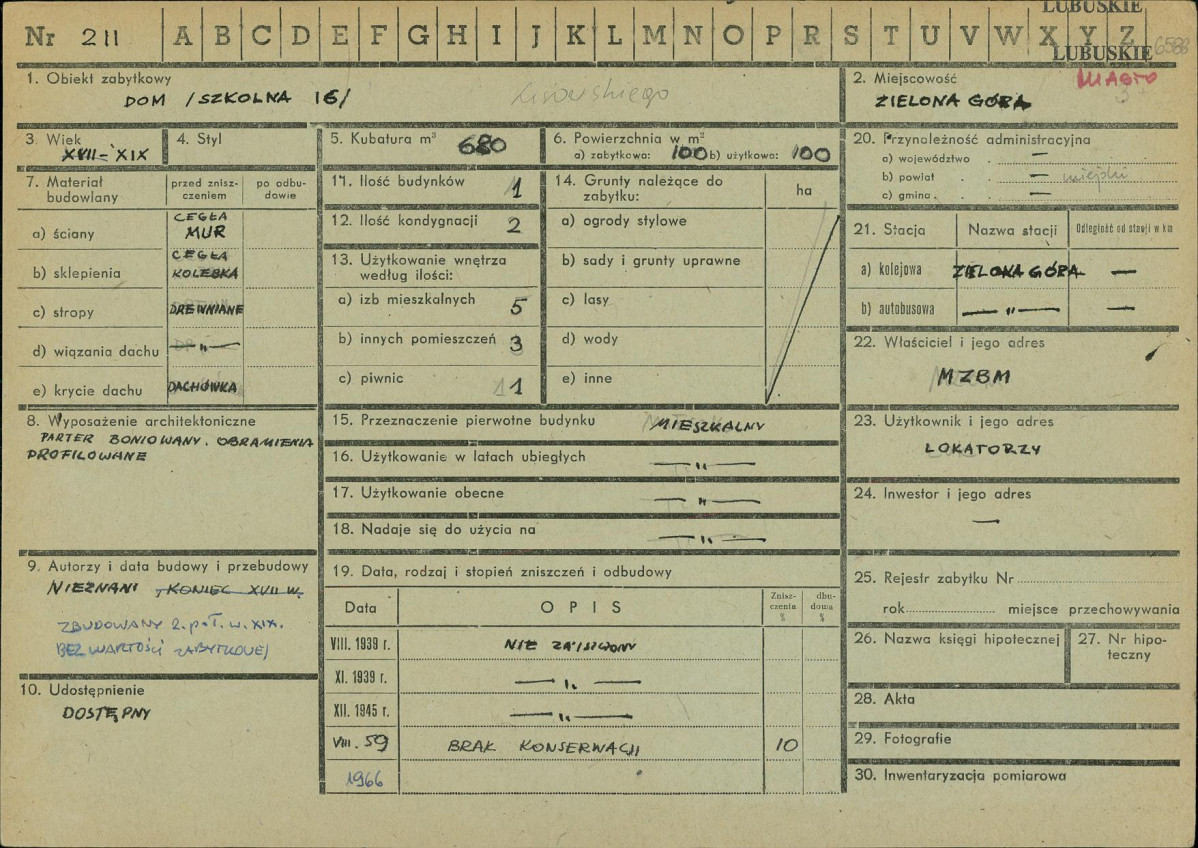 LUBUSKIE
Nr 211 A B C D E F G H I J K L M N O P R S T U V W X Y Z
LUBUSKIE 6588
1. Obiekt zabytkowy
DOM /SZKOLNA 16/
2. Miejscowość MIASTO
ZIELONA GÓRA
3. Wiek
XVII-XIX
4. Styl
5. Kubatura m³ 680
6. Powierzchnia w m²
a) zabytkowa: 100 b) użytkowa: 100
7. Materiał budowlany
przed znisz-
czeniem
po odbu-
dowie
a) ściany CEGŁA
MUR
b) sklepienia CEGŁA
KOLEBKA
c) stropy DREWNIANE
d) wiązania dachu —„—
e) krycie dachu DACHÓWKA
8. Wyposażenie architektoniczne
PARTER BONIOWANY. OBRAMIENIA
PROFILOWANE
9. Autorzy i data budowy i przebudowy
NIEZNANI, KONIEC XVII W.
ZBUDOWANY 2. poł. w. XIX.
BEZ WARTOŚCI ZABYTKOWEJ
10. Udostępnienie
DOSTĘPNY
11. Ilość budynków 1
12. Ilość kondygnacji 2
13. Użytkowanie wnętrza
według ilości:
a) izb mieszkalnych 5
b) innych pomieszczeń 3
c) piwnic 1
14. Grunty należące do
zabytku:
ha
a) ogrody stylowe
b) sady i grunty uprawne
c) lasy
d) wody
e) inne
15. Przeznaczenie pierwotne budynku MIESZKALNY
16. Użytkowanie w latach ubiegłych —„—
17. Użytkowanie obecne —„—
18. Nadaje się do użycia na —„—
19. Data, rodzaj i stopień zniszczeń i odbudowy
Data
OPIS
Znisz-
czenia
%
dbu-
dowa
%
VIII. 1939 r. NIE ZNISZCZONY
XI. 1939 r. —„—
XII. 1945 r. —„—
VIII. 59 BRAK KONSERWACJI 10
1966
20. Przynależność administracyjna
a) województwo —
b) powiat — miejski
c) gmina —
21. Stacja
Nazwa stacji
Odległość od stacji w km
a) kolejowa ZIELONA GÓRA —
b) autobusowa —„— —
22. Właściciel i jego adres
MZBM
23. Użytkownik i jego adres
LOKATORZY
24. Inwestor i jego adres
—
25. Rejestr zabytku Nr
rok miejsce przechowywania
26. Nazwa księgi hipotecznej
27. Nr hipo-
teczny
28. Akta
29. Fotografie
30. Inwentaryzacja pomiarowa